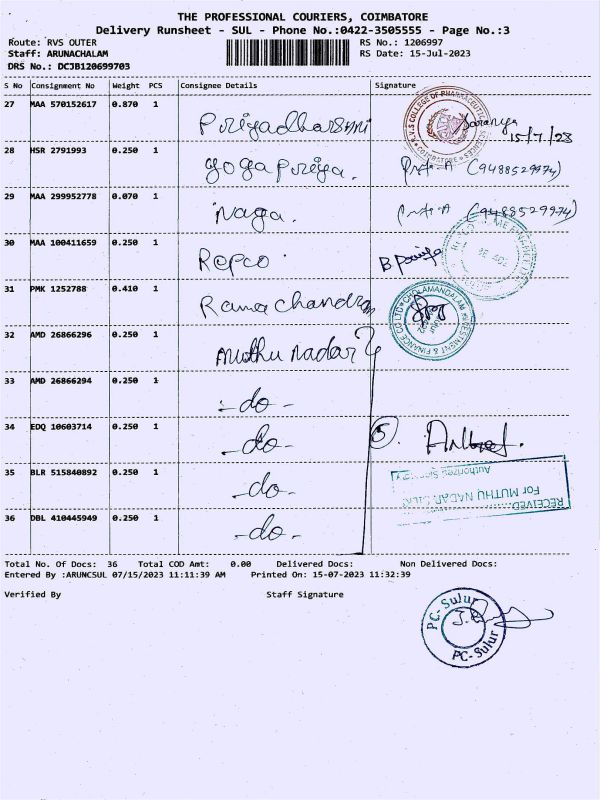 THE PROFESSIONAL COURIERS, COIMBATORE
Delivery Runsheet - SUL - Phone No.:0422-3505555 - Page No.:3
Route: RVS OUTER RS No.: 1206997
Staff: ARUNACHALAM RS Date: 15-Jul-2023
DRS No.: DCJB120699703
S No Consignment No Weight PCS Consignee Details Signature
27 MAA 570152617 0.870 1 Priyadharsini Saranya
15/7/23
28 HSR 2791993 0.250 1 yoga priya. (9488529974)
29 MAA 299952778 0.070 1 Naga. (9488529974)
30 MAA 100411659 0.250 1 Repco. B Poniya
31 PMK 1252788 0.410 1 Rama chandran
CHOLAMANDALAM INVESTMENT & FINANCE CO LTD
32 AMD 26866296 0.250 1 Muthu nadar
33 AMD 26866294 0.250 1 -do-
34 EDQ 10603714 0.250 1 -do- 5.
35 BLR 515840892 0.250 1 -do-
RECEIVED
For MUTHU NADAR
Authorizes
36 DBL 410445949 0.250 1 -do-
Total No. Of Docs: 36 Total COD Amt: 0.00 Delivered Docs: Non Delivered Docs:
Entered By :ARUNCSUL 07/15/2023 11:11:39 AM Printed On: 15-07-2023 11:32:39
Verified By Staff Signature
PC-Sulur
PC-Sulur